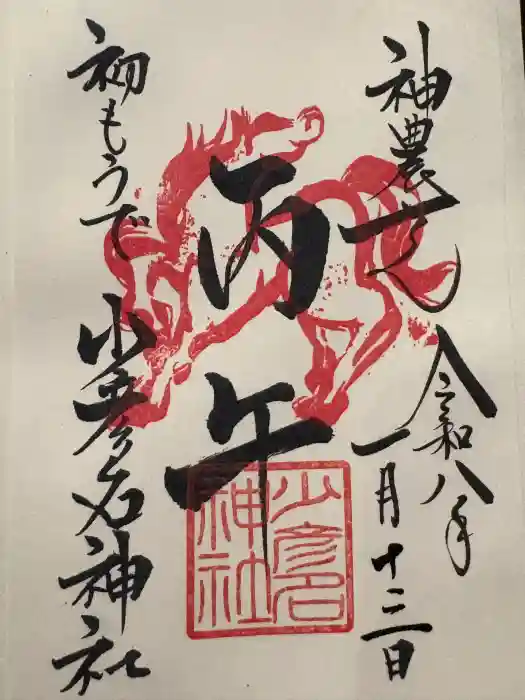 神農さん
令和八年
一月十三日
丙午
初もうで
少彦名神社
少彦名
神社